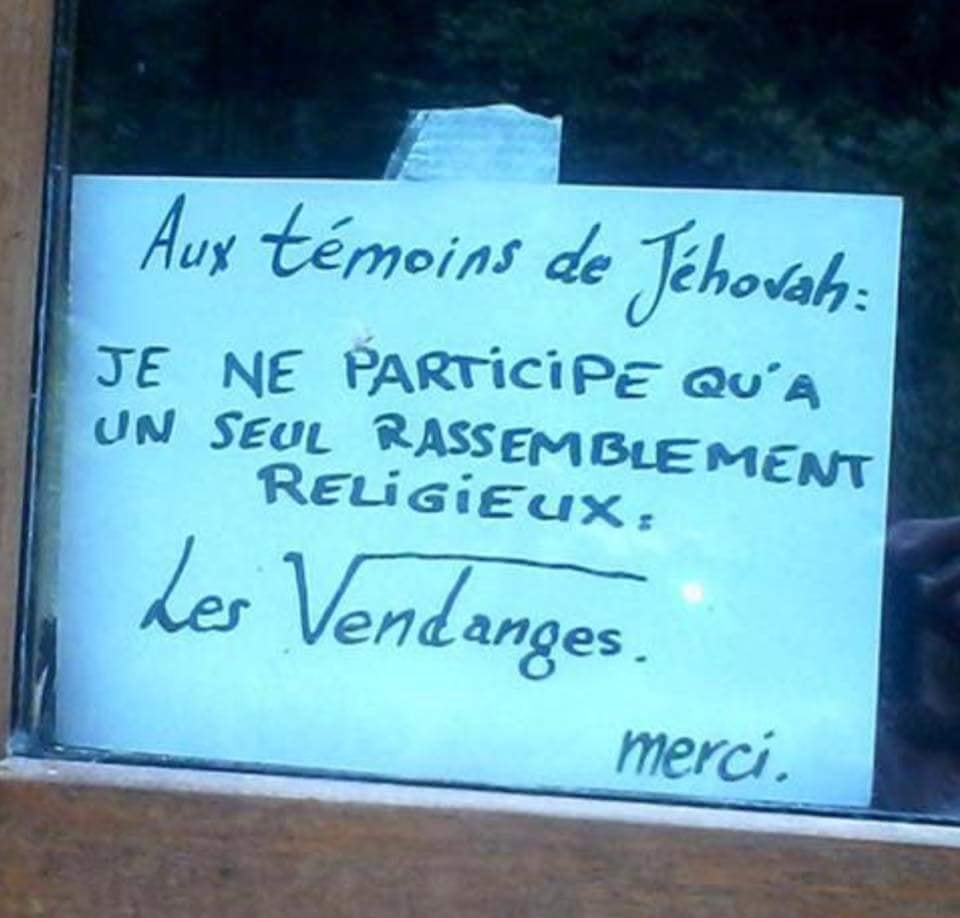 Aux témoins de Jéhovah:
JE NE PARTICIPE QU'A
UN SEUL RASSEMBLEMENT
RELIGIEUX:
Les Vendanges.
merci.